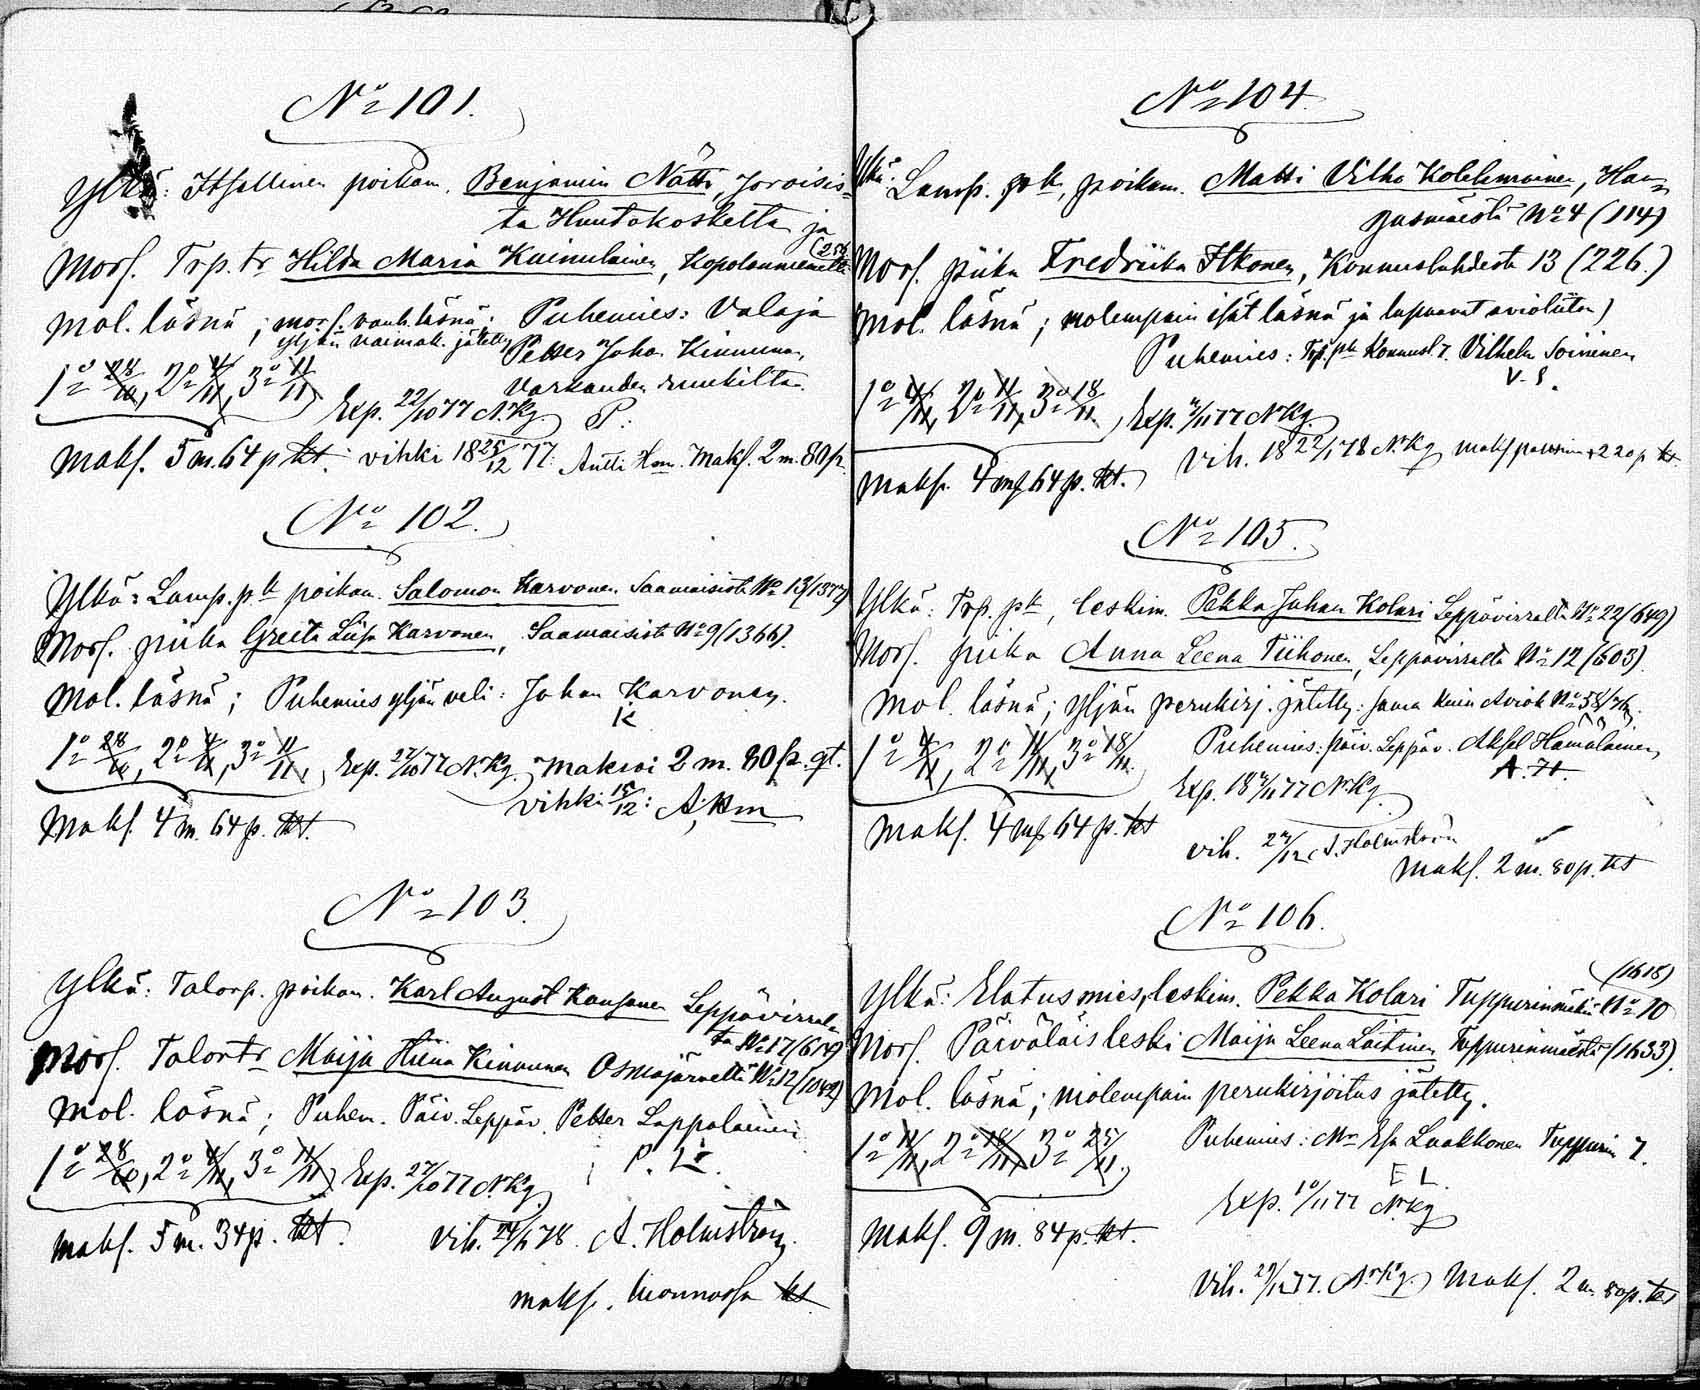 No 101.
Ylkä: Itsellinen poikam. Benjamin Nätti, Joroisis-
ta Huutokoskelta ja
Mors. Trp. tr Hilda Maria Kainulainen, Kopolanniemeltä
Mol. läsnä; mors. vanh. läsnä. Puhemies: Valaja
yljän naimak. jätetty Petter Johan Kinnunen,
Varkauden ruukilta.
1o 28/10, 2o 4/11, 3o 11/11 Exp. 22/10 77 NKg. P:
maks. 5 m. 64 p kt. vihki 18 25/12 77: Antti Hm. Maks. 2 m. 80 p.
No 102.
Ylkä: Lamp. pk poikam. Salomon Karvonen Saamaisista No 13 (1377)
Mors. piika Greita Liisa Karvonen, Saamaisista No 9 (1366).
Mol. läsnä; Puhemies yljän veli: Johan Karvonen.
K
1o 28/10, 2o 4/11, 3o 11/11, Exp. 22/10 77 NKg. maksoi 2 m. 80 p. qt.
vihki 15/12: A. Hm
Maks. 4 m. 64 p. kt.
No 103.
Ylkä: Talonp. poikam. Karl August Kansanen Leppävirral-
ta No 17 (619)
Mors. Talon tr Maija Hiena Kinnunen Osmajärveltä No 12 (1042)
Mol. läsnä; Puhem. Päiv. Leppäv. Petter Lappalainen
P. L.
1o 28/10, 2o 4/11, 3o 11/11 Exp. 27/10 77 NKg.
maks. 5 m. 34 p. kt. Vih. 24/1 78. A. Holmström.
maks. luonnossa kt
No 104.
Ylkä: Lamp. pk, poikam. Matti Vilho Kolehmainen, Han-
jusmäestä No 4 (114)
Mors. piika Fredriika Itkonen, Konnuslahdesta 13 (226.)
Mol. läsnä; molempain isät läsnä ja lupaavat avioliiton)
Puhemies: Trp. pk Konnusl 7. Vilhelm Soininen
V. S.
1o 4/11, 2o 11/11, 3o 18/11. Exp. 4/11 77 NKg.
Maks. 4 mk 64 p. kt. Vih. 18 22/1 78 NKg
No 105.
Ylkä: Trp. pk, leskim. Pekka Juhan Kolari Leppävirralta No 22 (649)
Mors. piika Anna Leena Tiihonen, Leppävirralta No 12 (603).
Mol. läsnä; yljän perukirj. jätetty: sama kuin Aviok No 58/76.
1o 4/11, 2o 11/11, 3o 18/11. Puhemies: päiv. Leppäv. Aksel Hämäläinen
A. H.
Exp. 18 4/11 77 NKg.
Maks. 4 mk 64 p. kt Vih. 27/12 A. Holmström
Maks. 2 m. 80 p. kt
No 106.
(1618)
Ylkä: Elatusmies, leskim. Pekka Kolari Tuppurinmäki No 10
Mors. Päiväläisleski Maija Leena Laitinen Tuppurinmäestä (1633).
Mol. läsnä; molempain perukirjoitus jätetty.
1o 11/11, 2o 18/11, 3o 25/11. Puhemies: Esa Laakkonen Tuppurin 7.
E L.
Exp. 10/11 77 NKg
Maks. 9 m. 84 p. kt.
Vih. 27/12 77. NKg. Maks. 2 m. 80 p. kt